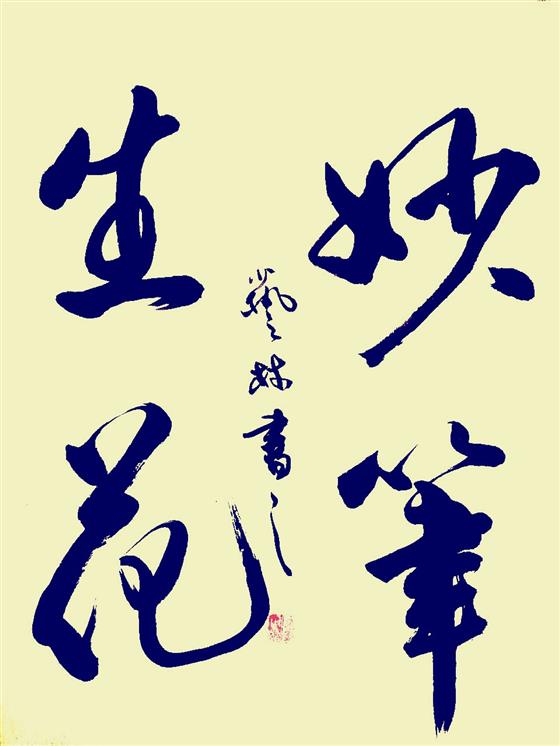 妙筆
生花
藝妹書之